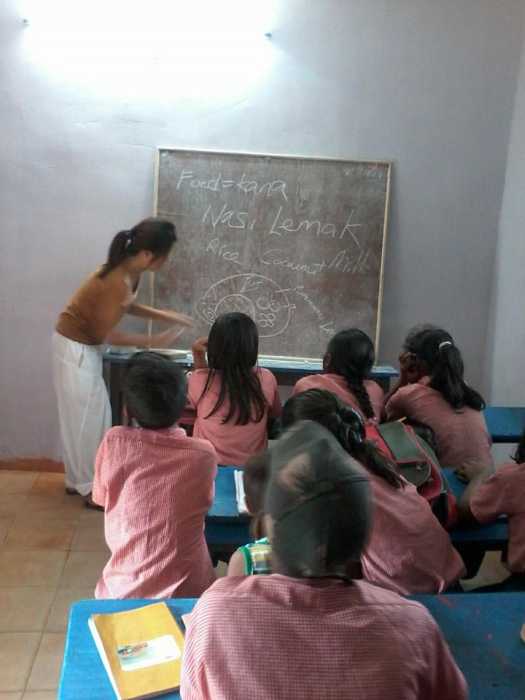 Food = kana
Nasi Lemak
Rice Coconut Milk